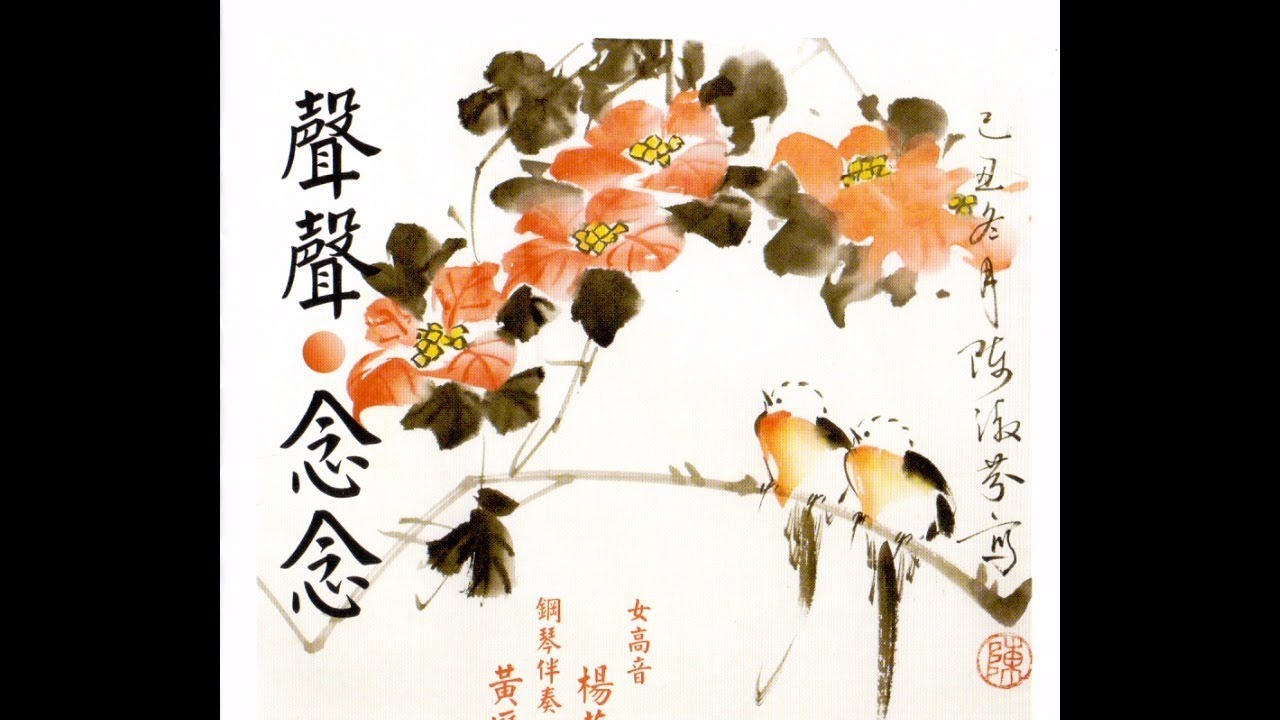 己丑冬月陳淑芬寫
陳
聲聲•念念
女高音
楊
鋼琴伴奏
黃